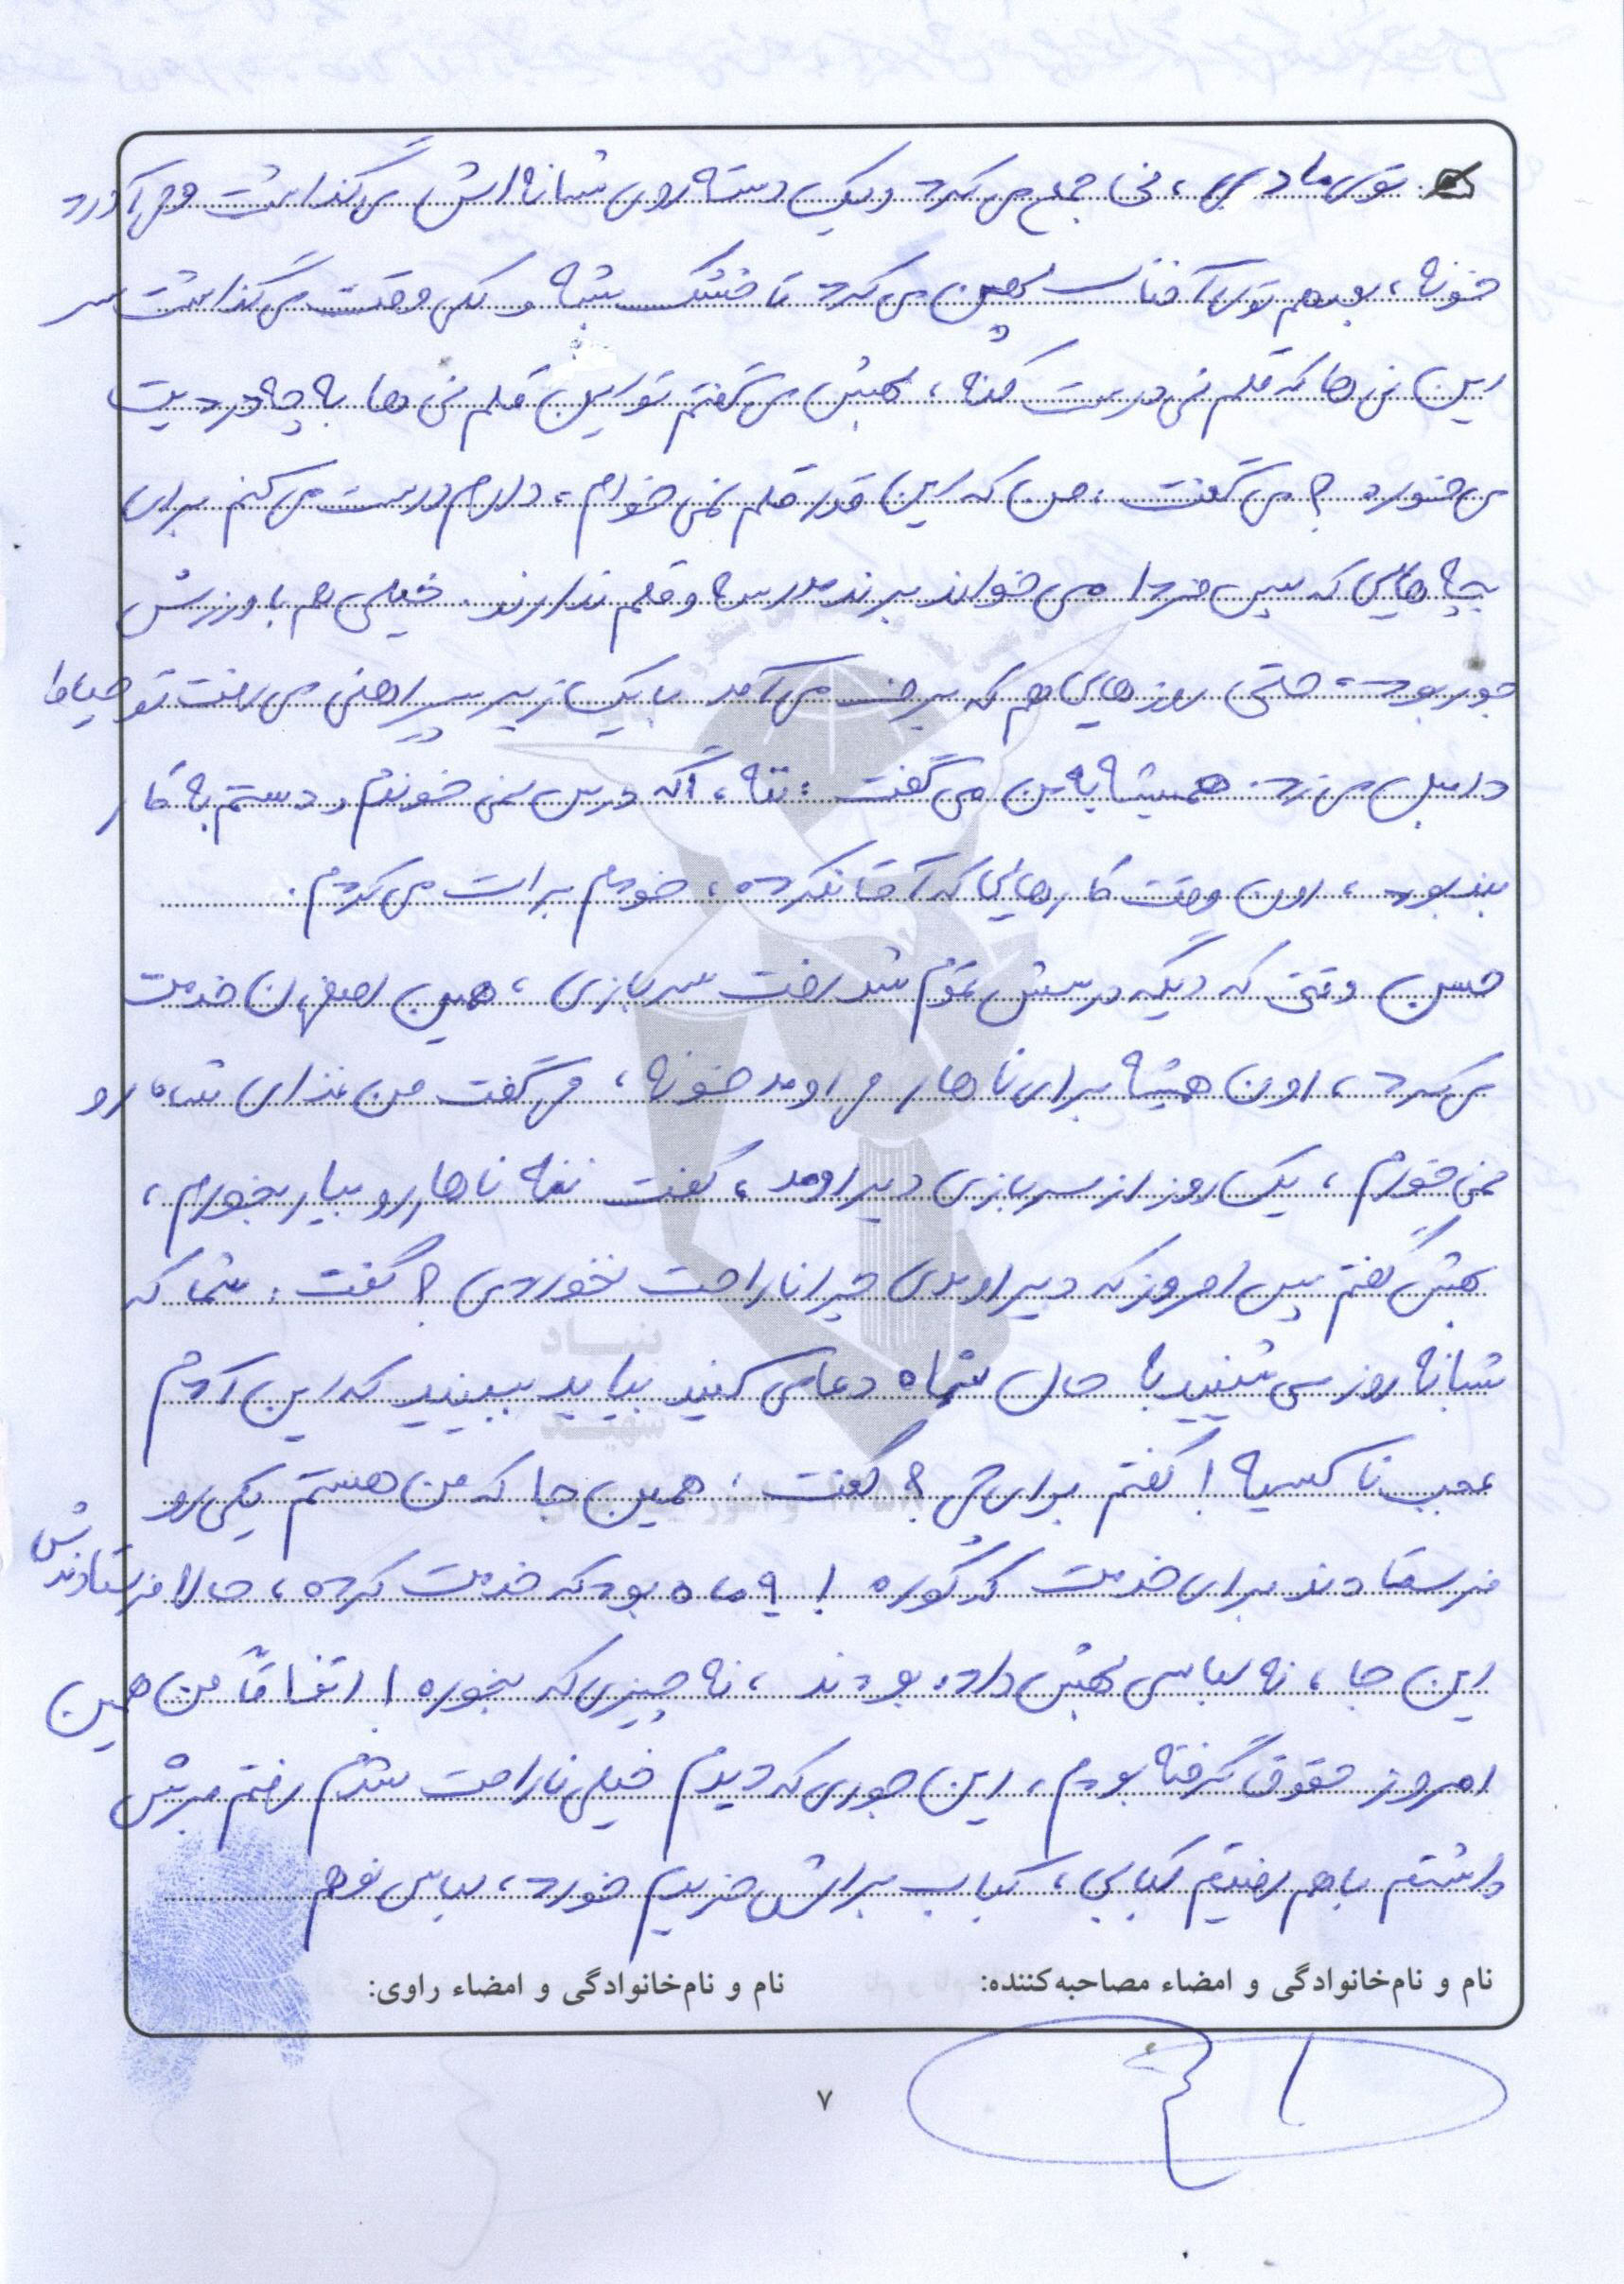 توی مادی، نی جمع می‌کرد و یک دسته روی شانه‌اش می‌گذاشت و می‌آورد
خونه، بعد هم توی آفتاب پهن می‌کرد تا خشک بشه و کلی وقت می‌گذاشت سر
این نی‌ها که قلم نی درست کنه، بهش می‌گفتم تو این قلم نی‌ها به چه دردیت
می‌خوره؟ می‌گفت: من که این قدر قلم نمی‌خوام، دارم درست می‌کنم برای
بچه‌هایی که پس فردا می‌خواند برند مدرسه و قلم ندارند. خیلی هم با ورزش
جور بود، حتی روزهایی هم که برف می‌آمد با یک زیر پیراهنی می‌رفت تو حیاط
دامبل می‌زد. همیشه به من می‌گفت: ننه، اگه درس نمی‌خوندم و دستم به کار
بند بود، اون وقت کارهایی که آقا نکرده، خودم برات می‌کردم.
حسن وقتی که دیگه درسش تموم شد رفت سربازی، همین اصفهان خدمت
می‌کرد، اون همیشه برای ناهار می‌اومد خونه، می‌گفت من غذای شاه رو
نمی‌خورم، یک روز از سربازی دیر اومد، گفت ننه ناهار رو بیار بخورم،
بهش گفتم پس امروز که دیر اومدی چرا ناراحت نخوردی؟ گفت: شما که
شبانه روز می‌شینید با حال شاه دعا می‌کنید بیاید ببینید که این آدم
عجب ناکسیه! گفتم برای چی؟ گفت: همین جا که من هستم یکی رو
فرستادند برای خدمت که کوره! ۹ ماه بود که خدمت کرده، حالا فرستادندش
این جا، نه لباسی بهش داده بودند، نه چیزی که بخوره! اتفاقاً من همین
امروز حقوق گرفته بودم، این جوری که دیدم خیلی ناراحت شدم رفتم برش
داشتم با هم رفتیم کبابی، کباب براش خریدم خورد، لباس نو هم
نام و نام‌خانوادگی و امضاء مصاحبه‌کننده:
نام و نام‌خانوادگی و امضاء راوی:
۷
بنیاد
شهید